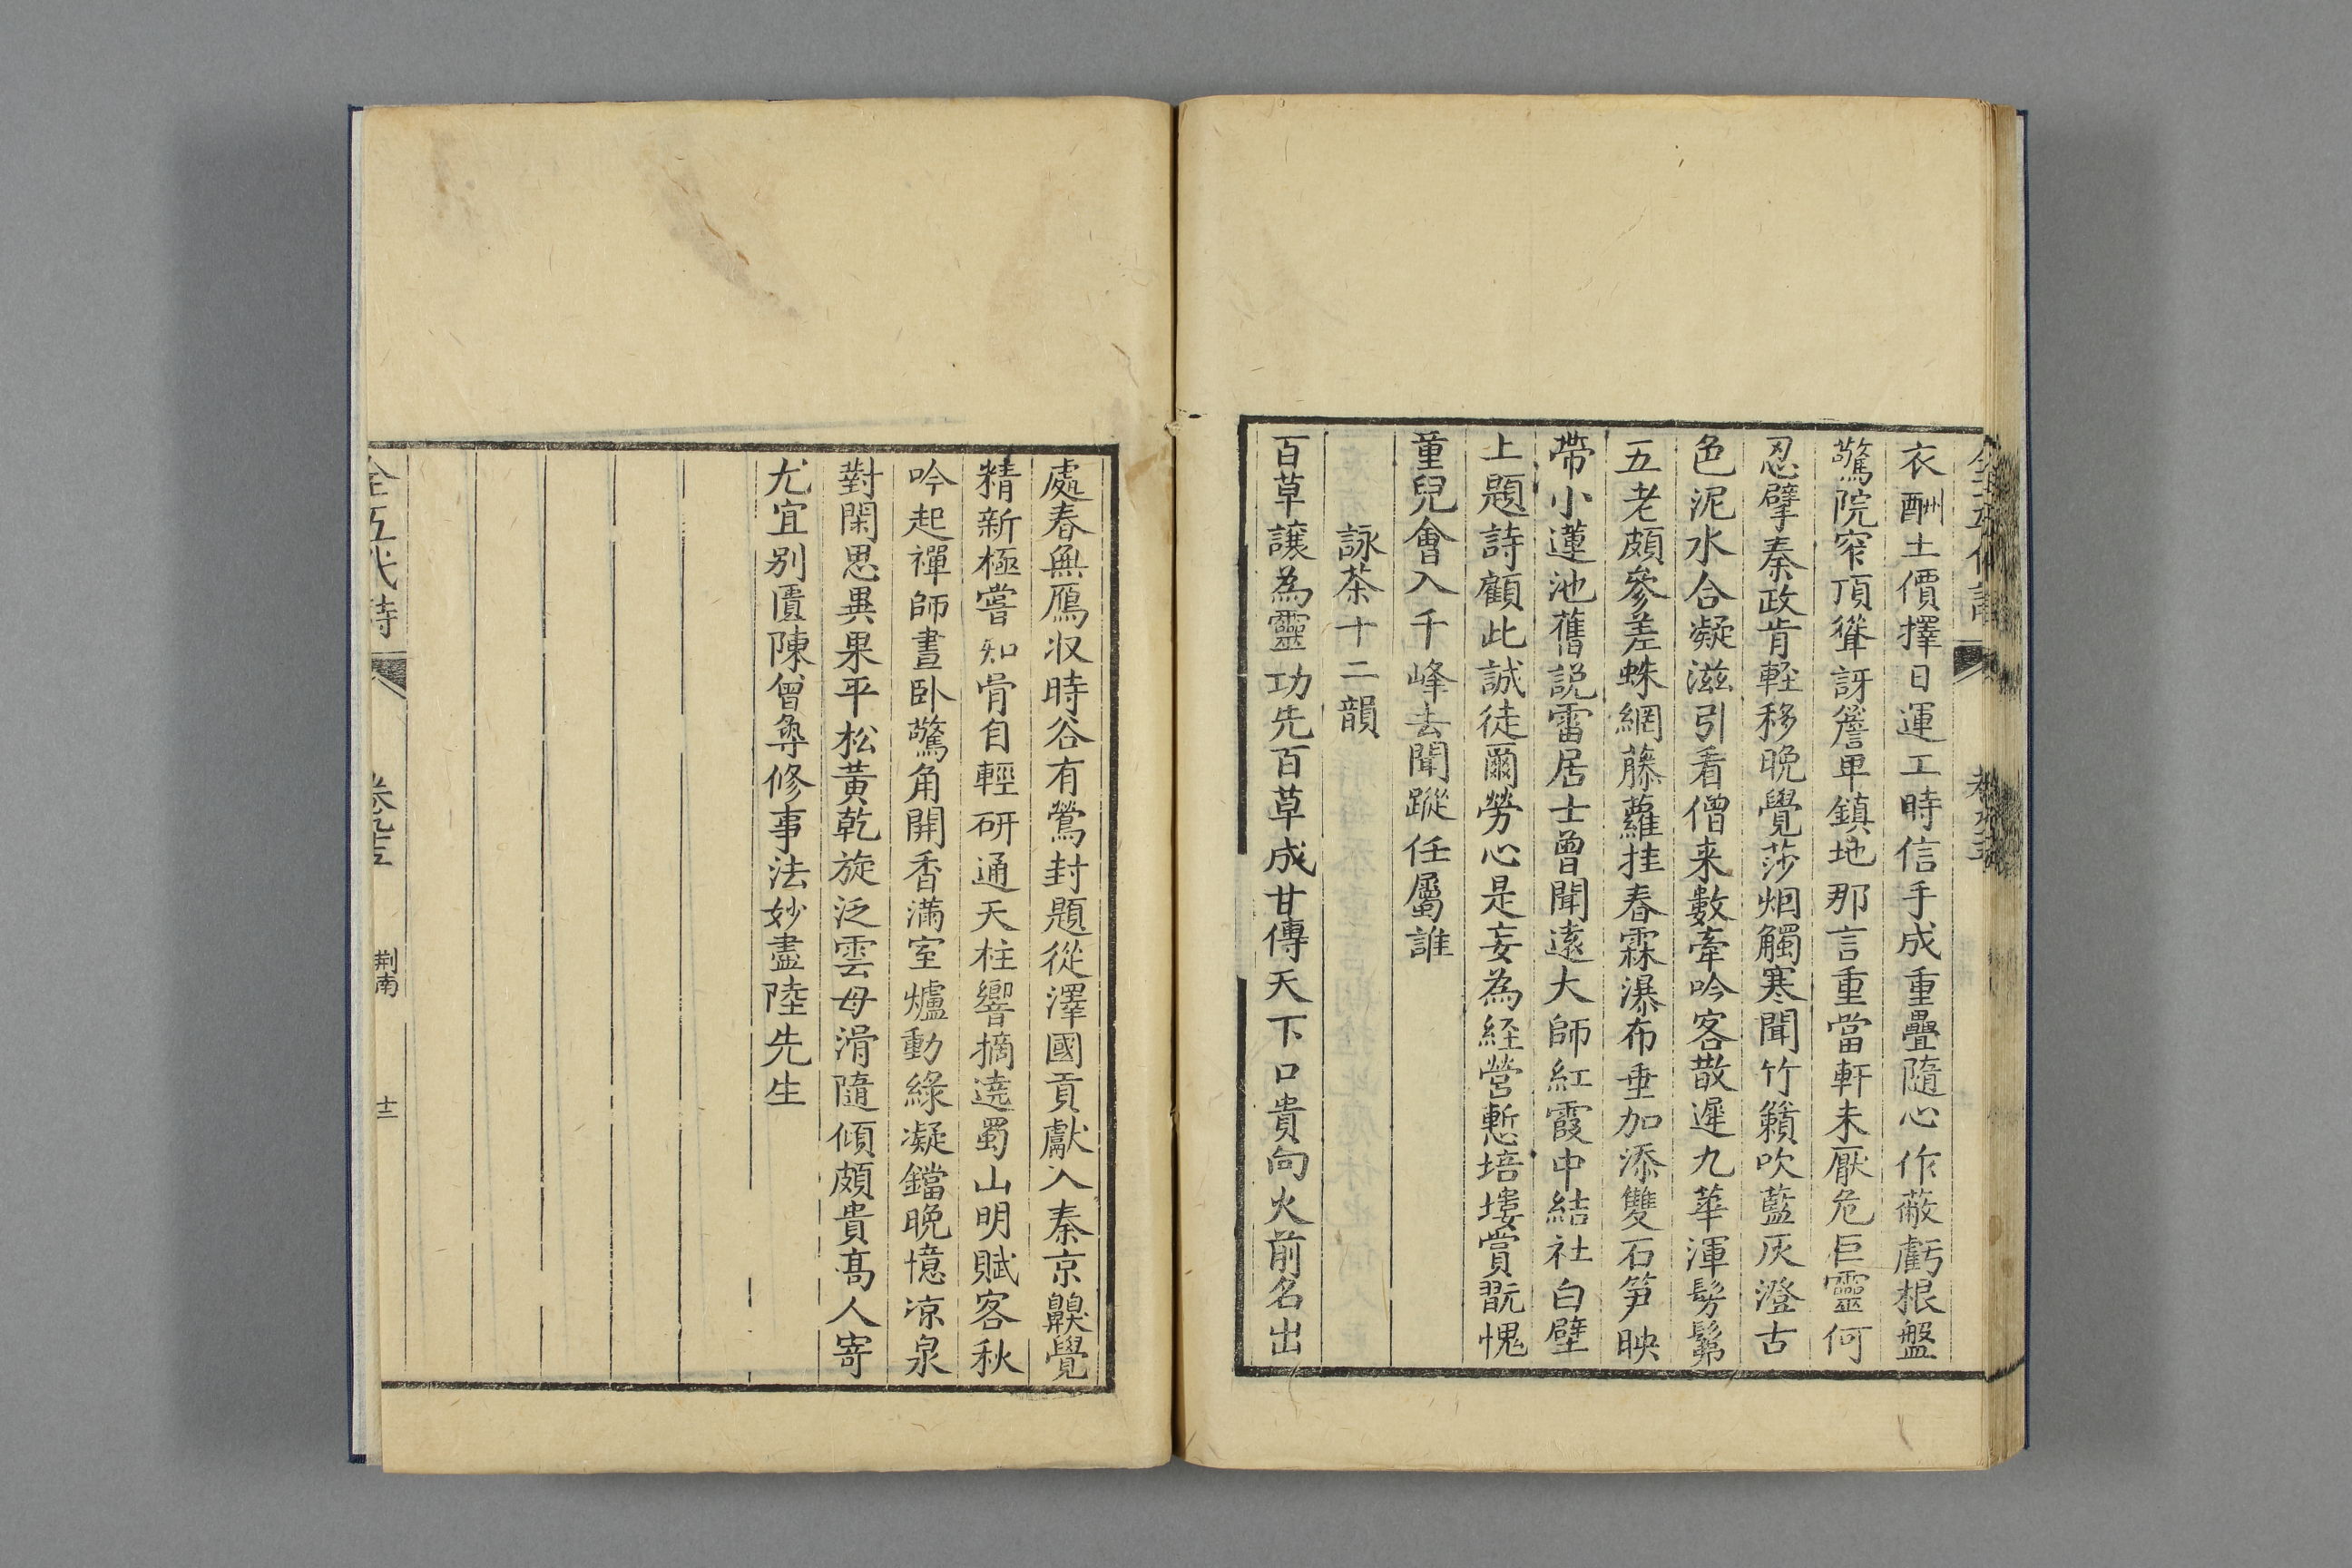 衣酬土價擇日運工時信手成重疊隨心作蔽虧根盤
驚院窄頂聳訝簷卑鎮地那言重當軒未厭危巨靈何
忍擘秦政肯輕移晩覺莎烟觸寒聞竹籟吹藍灰澄古
色泥水合凝滋引看僧来數牽吟客散遲九華渾髣髴
五老頗參差蛛網藤蘿挂春霖瀑布垂加添雙石笋映
帶小蓮池舊説雷居士曾聞遠大師紅霞中結社白壁
上題詩顧此誠徒爾勞心是妄為経營慙培塿賞翫愧
童兒會入千峰去聞蹤任屬誰
詠茶十二韻
百草讓為靈功先百草成甘傳天下口貴向火前名出
處春無鴈収時谷有鶯封題從澤國貢獻入秦京齅覺
精新極嘗知骨自輕研通天柱響摘遶蜀山明賦客秋
吟起禪師晝卧驚角開香滿室爐動綠凝鐺晩憶凉泉
對閑思異果平松黃乾旋泛雲母滑隨傾頗貴髙人寄
尤宜別匱陳曾尋修事法妙盡陸先生
全五代詩
荆南
十二